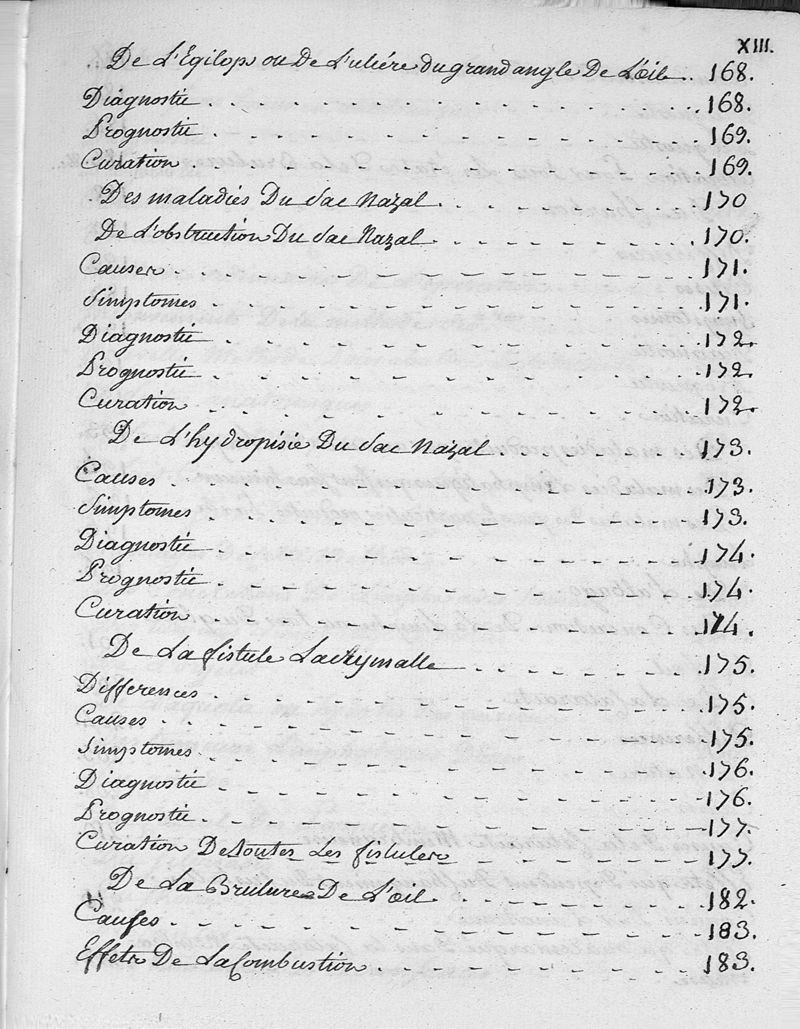 XIII.
De L'Egilops ou De L'ulcére du grand angle De L'œil . . 168.
Diagnostic . . . . . . . . . . . . . . . . 168.
Prognostic . . . . . . . . . . . . . . . . 169.
Curation . . . . . . . . . . . . . . . . 169.
Des maladiés Du Sac Nazal . . . . . . . . . 170
De L'obstruction Du Sac Nazal . . . . . . . . . 170.
Causes . . . . . . . . . . . . . . . . 171.
Simptomes . . . . . . . . . . . . . . . . 171.
Diagnostic . . . . . . . . . . . . . . . . 172.
Prognostic . . . . . . . . . . . . . . . . 172.
Curation . . . . . . . . . . . . . . . . 172.
De L'hydropisie Du Sac Nazal . . . . . . . 173.
Causes . . . . . . . . . . . . . . . . 173.
Simptomes . . . . . . . . . . . . . . . . 173.
Diagnostic . . . . . . . . . . . . . . . . 174.
Prognostic . . . . . . . . . . . . . . . . 174.
Curation . . . . . . . . . . . . . . . . 174.
De La fistule Lachrymalle . . . . . . . . . 175.
Differences . . . . . . . . . . . . . . . . 175.
Causes . . . . . . . . . . . . . . . . 175.
Simptomes . . . . . . . . . . . . . . . . 176.
Diagnostic . . . . . . . . . . . . . . . . 176.
Prognostic . . . . . . . . . . . . . . . . 177.
Curation De Toutes Les fistules . . . . . . . . 177.
De La Brulure De L'œil . . . . . . . . . 182.
Causes . . . . . . . . . . . . . . . . 183.
Effets De La Combustion . . . . . . . . . . 183.